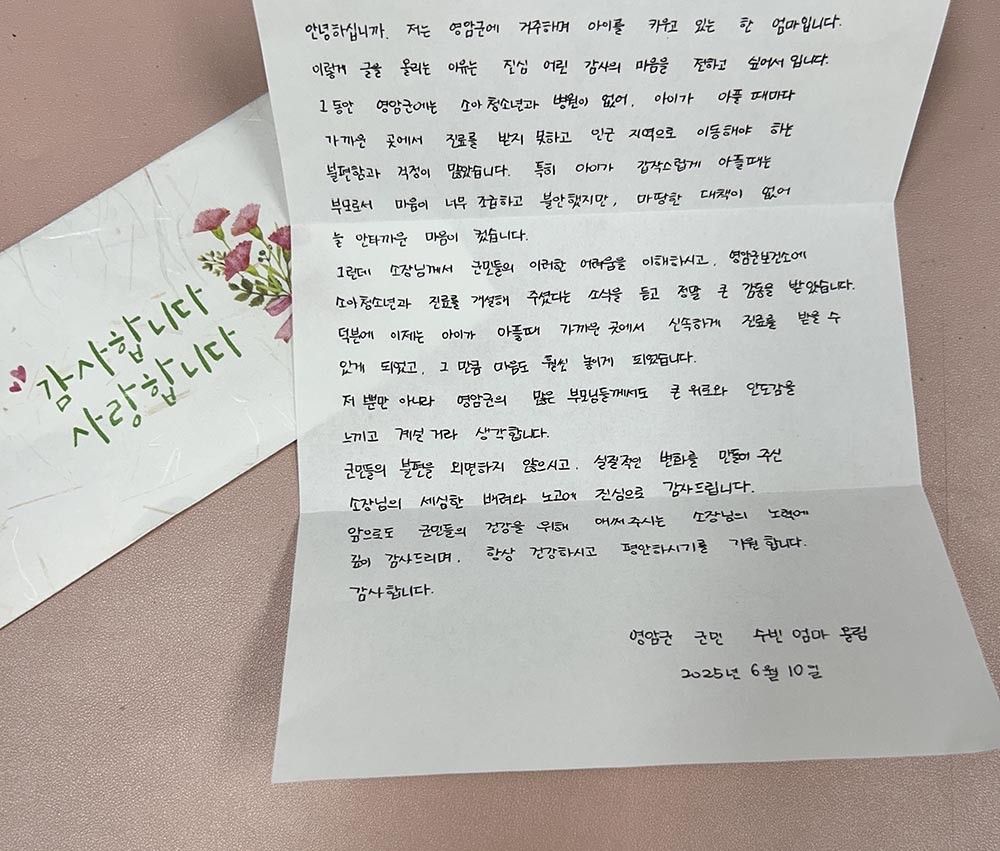 안녕하십니까. 저는 영암군에 거주하며 아이를 키우고 있는 한 엄마입니다.
이렇게 글을 올리는 이유는 진심 어린 감사의 마음을 전하고 싶어서 입니다.
그동안 영암군에는 소아청소년과 병원이 없어, 아이가 아플 때마다
가까운 곳에서 진료를 받지 못하고 인근 지역으로 이동해야 하는
불편함과 걱정이 많았습니다. 특히 아이가 갑작스럽게 아플때는
부모로서 마음이 너무 조급하고 불안했지만, 마땅한 대책이 없어
늘 안타까운 마음이 컸습니다.
그런데 소장님께서 군민들의 이러한 어려움을 이해하시고, 영암군보건소에
소아청소년과 진료를 개설해 주셨다는 소식을 듣고 정말 큰 감동을 받았습니다.
덕분에 이제는 아이가 아플때 가까운 곳에서 신속하게 진료를 받을 수
있게 되었고, 그 만큼 마음도 훨씬 놓이게 되었습니다.
저 뿐만 아니라 영암군의 많은 부모님들께서도 큰 위로와 안도감을
느끼고 계실 거라 생각합니다.
군민들의 불편을 외면하지 않으시고, 실질적인 변화를 만들어 주신
소장님의 세심한 배려와 노고에 진심으로 감사드립니다.
앞으로도 군민들의 건강을 위해 애써주시는 소장님의 노력에
깊이 감사드리며, 항상 건강하시고 평안하시기를 기원합니다.
감사합니다.
영암군 군민 수빈 엄마 올림
2025년 6월 10일
감사합니다
사랑합니다